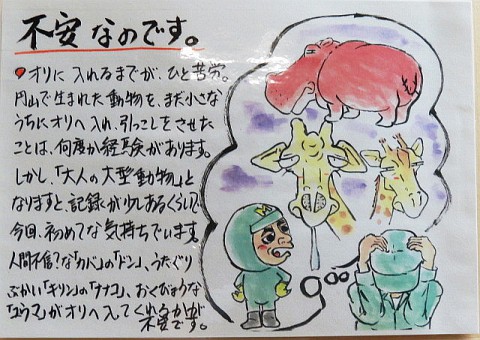 不安なのです。
オリに入れるまでが、ひと苦労。
円山で生まれた動物を、まだ小さな
うちにオリへ入れ、引っこしをさせた
ことは、何度か経験があります。
しかし、「大人の大型動物」と
なりますと、記録が少しあるくらいで、
今回、初めてな気持ちでいます。
人間不信な「カバ」の「ドン」、うたぐり
ぶかい「キリン」の「ナナコ」、おくびょうな
「ユウマ」がオリへ入ってくれるかが
不安です。